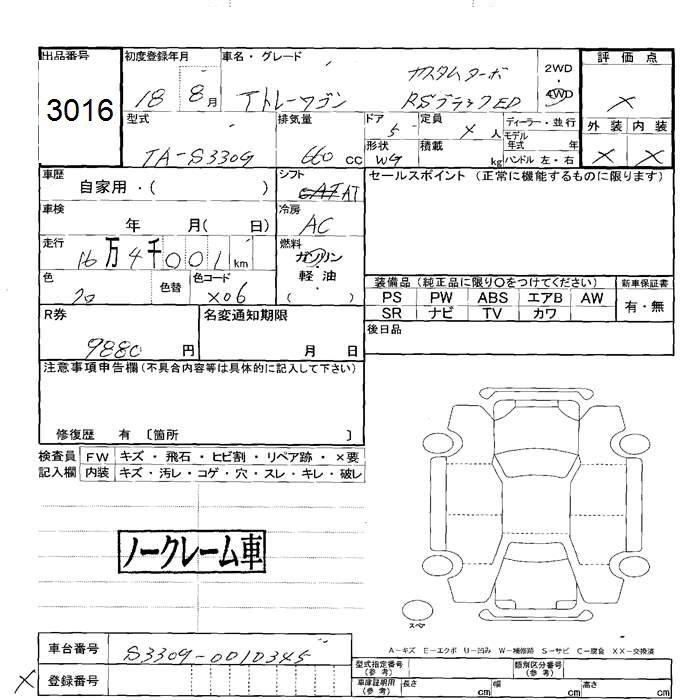 出品番号 初度登録年月 車名・グレード 評価点
3016 18 8月 アトレーワゴン カスタムターボ RSブラックED 2WD・4WD ×
外装 内装
× ×
型式 排気量 ドア 定員 ディーラー・並行
TA-S330G 660cc 5 4人 モデル年式 年
形状 積載 ハンドル 左・右
WG kg
車歴 シフト セールスポイント (正常に機能するものに限ります)
自家用・( ) AT
車検 冷房
年 月( 日) AC
走行 燃料
16万4千001km ガソリン・軽油
( )
色 色替 色コード
クロ X06
装備品 (純正品に限り〇をつけてください) 新車保証書
PS PW ABS エアB AW 有・無
SR ナビ TV カワ
R券 名変通知期限 後日品
9880円 月 日
注意事項申告欄(不具合内容等は具体的に記入して下さい)
修復歴 有 〔箇所 〕
検査員 FW キズ・飛石・ヒビ割・リペア跡・×要
記入欄 内装 キズ・汚レ・コゲ・穴・スレ・キレ・破レ
ノークレーム車
スペア
A-キズ E-エクボ U-凹み W-補修跡 S-サビ C-腐食 XX-交換済
車台番号 S330G-0010345
× 登録番号
型式指定番号(参考) 類別区分番号(参考)
車庫証明用(参考) 長さ cm 幅 cm 高さ cm